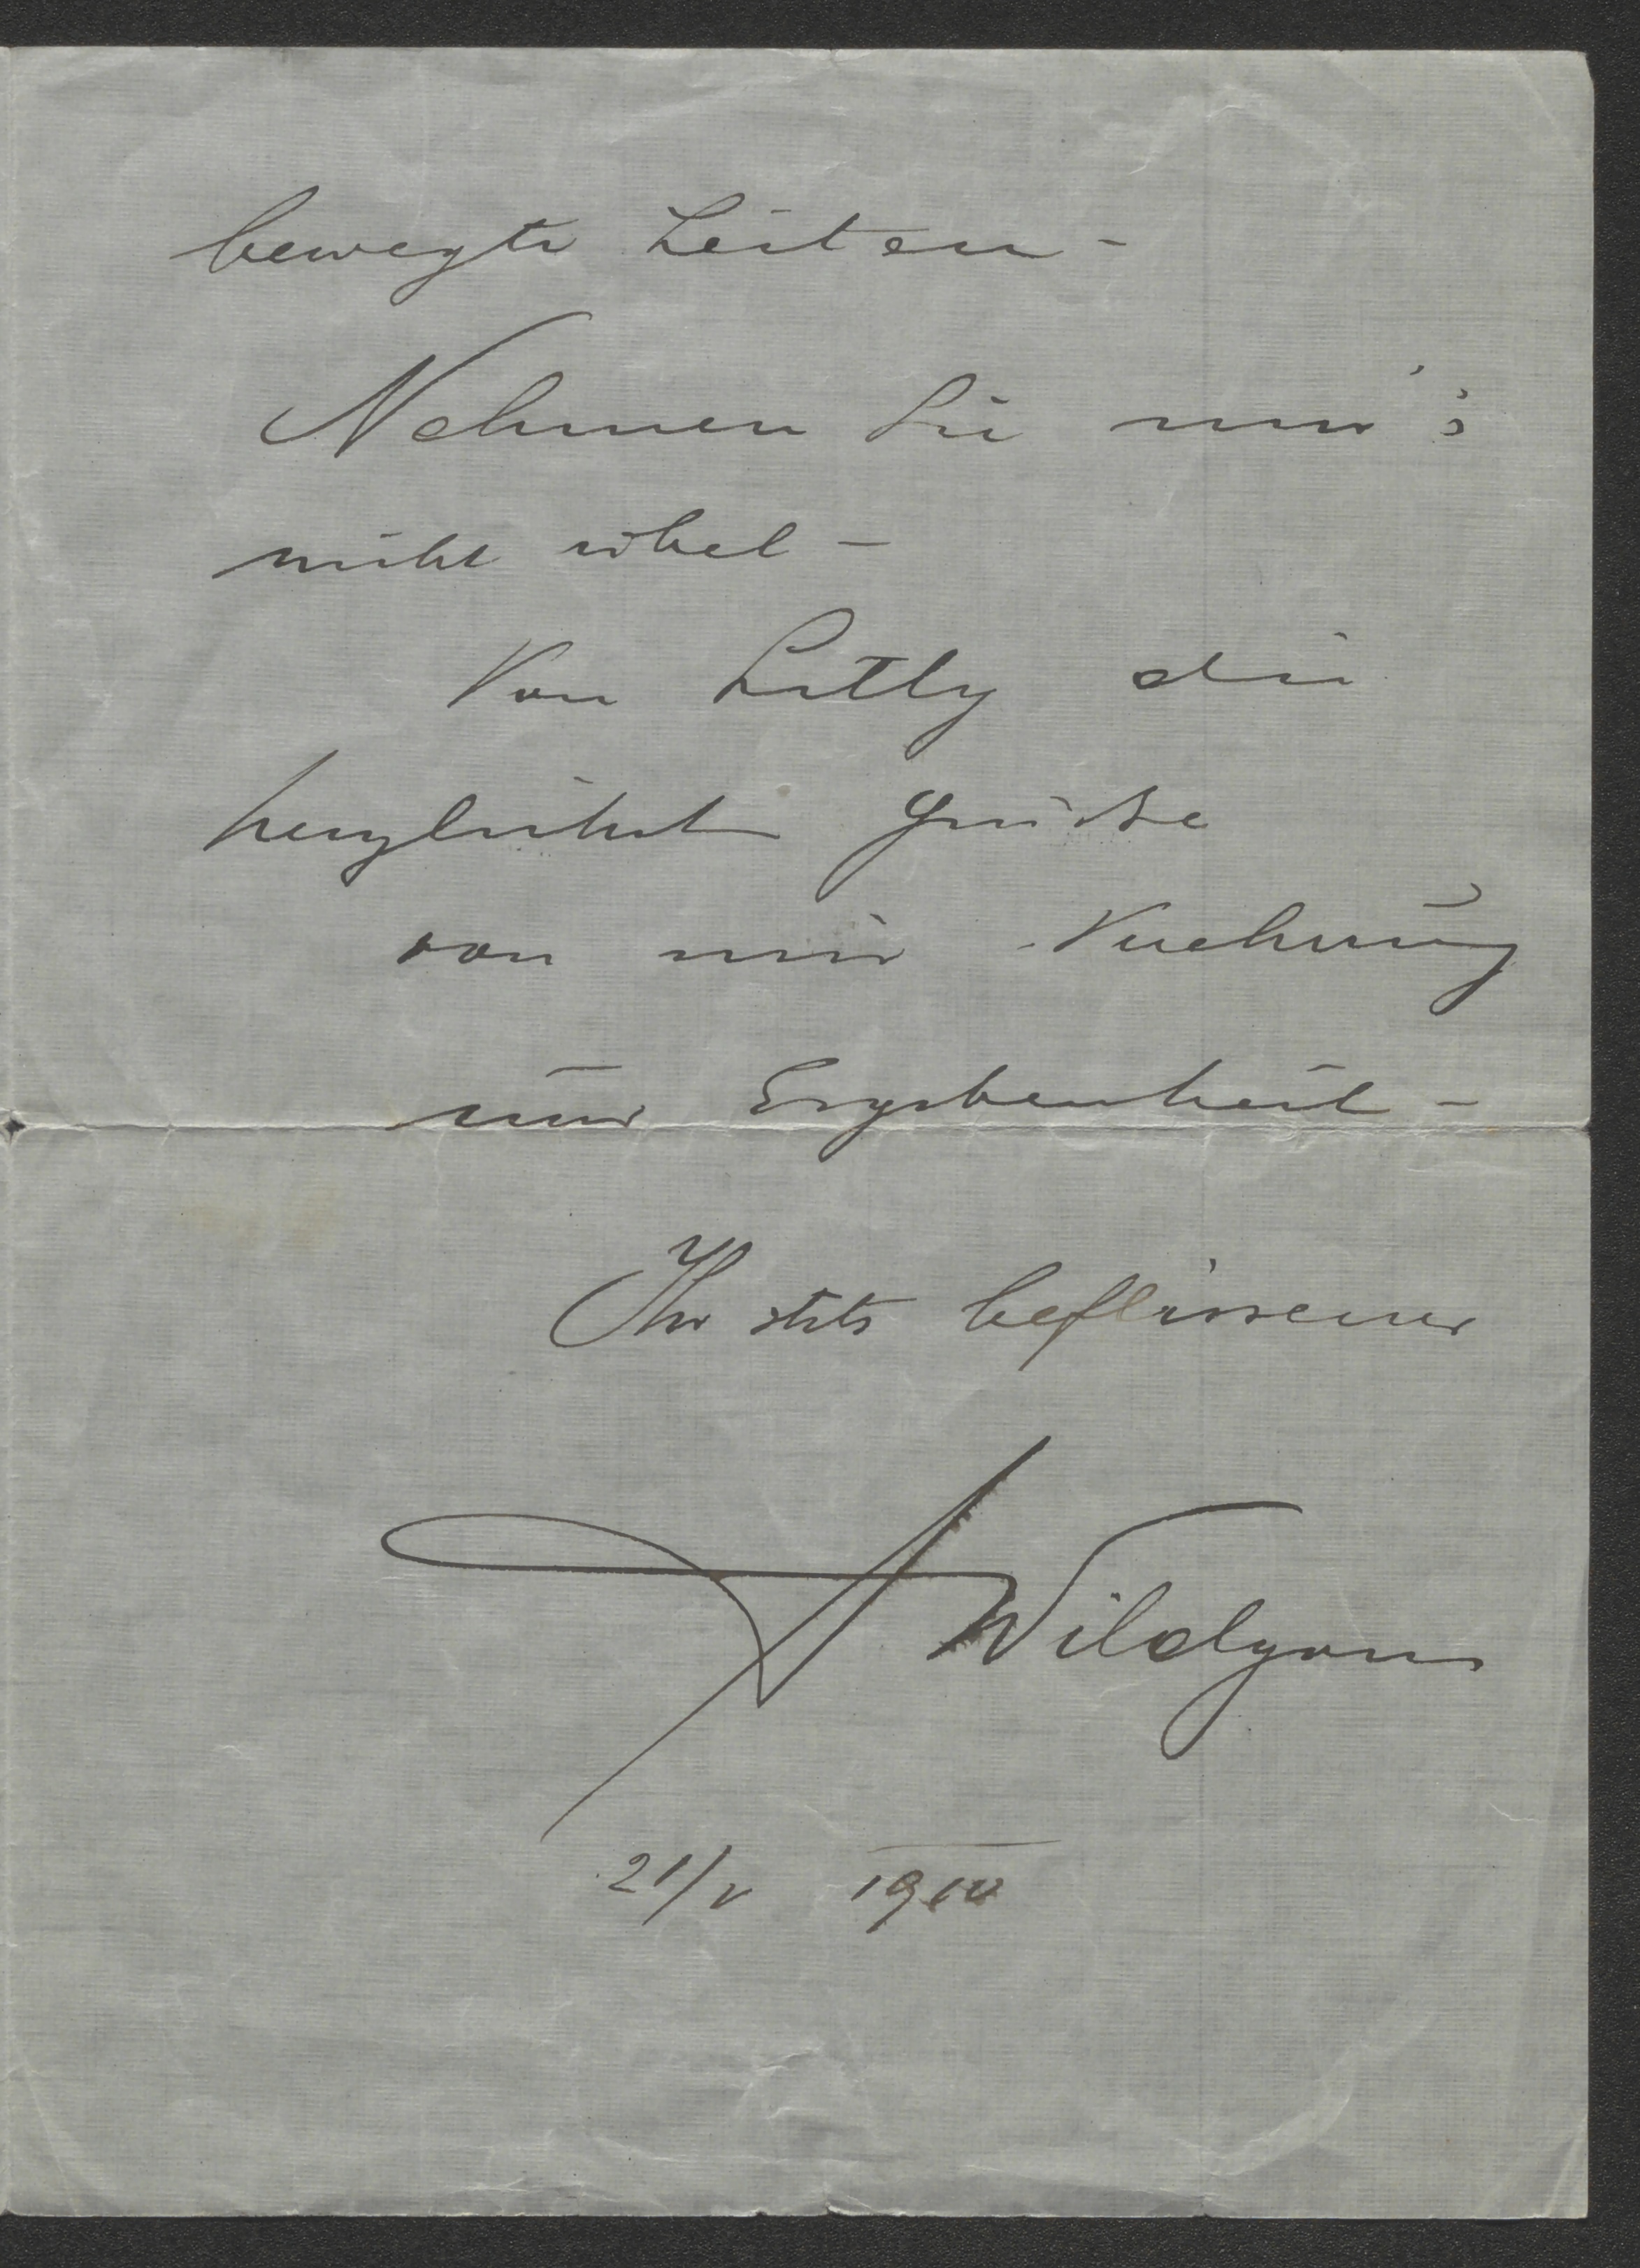 bewegte Zeiten -
Nehmen Sie mir's
nicht übel -
Von Lilly die
herzlichst Grüsse
von mir Verehrung
und Ergebenheit -
Ihr stets beflissener
AWildgans
21/V 1910